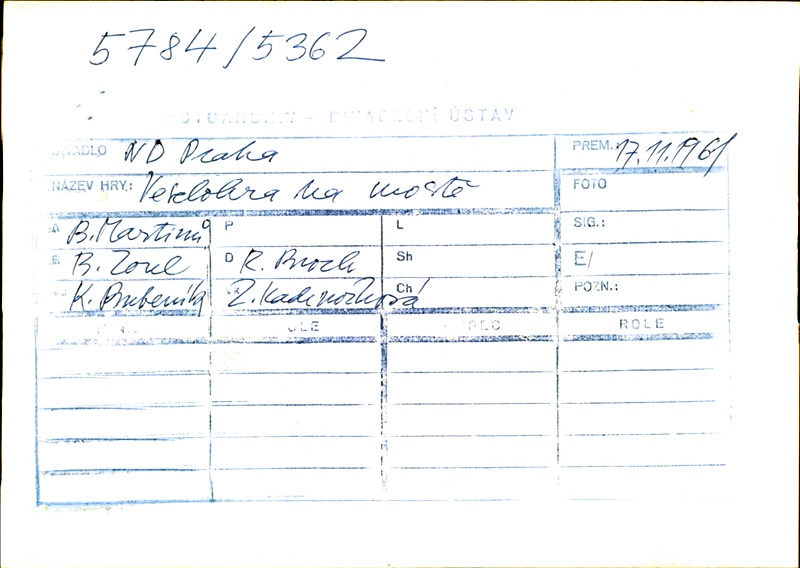 5784/5362
FOTOARCHIV – DIVADELNÍ ÚSTAV
DIVADLO ND Praha PREM.: 17.11.1961
NÁZEV HRY: Veselohra na mostě FOTO
A B. Martinů P L SIG.:
R B. Zoul D K. Broch Sh E/
K. Brubeník K Z. Kadeřnožková Ch POZN.:
ROLE